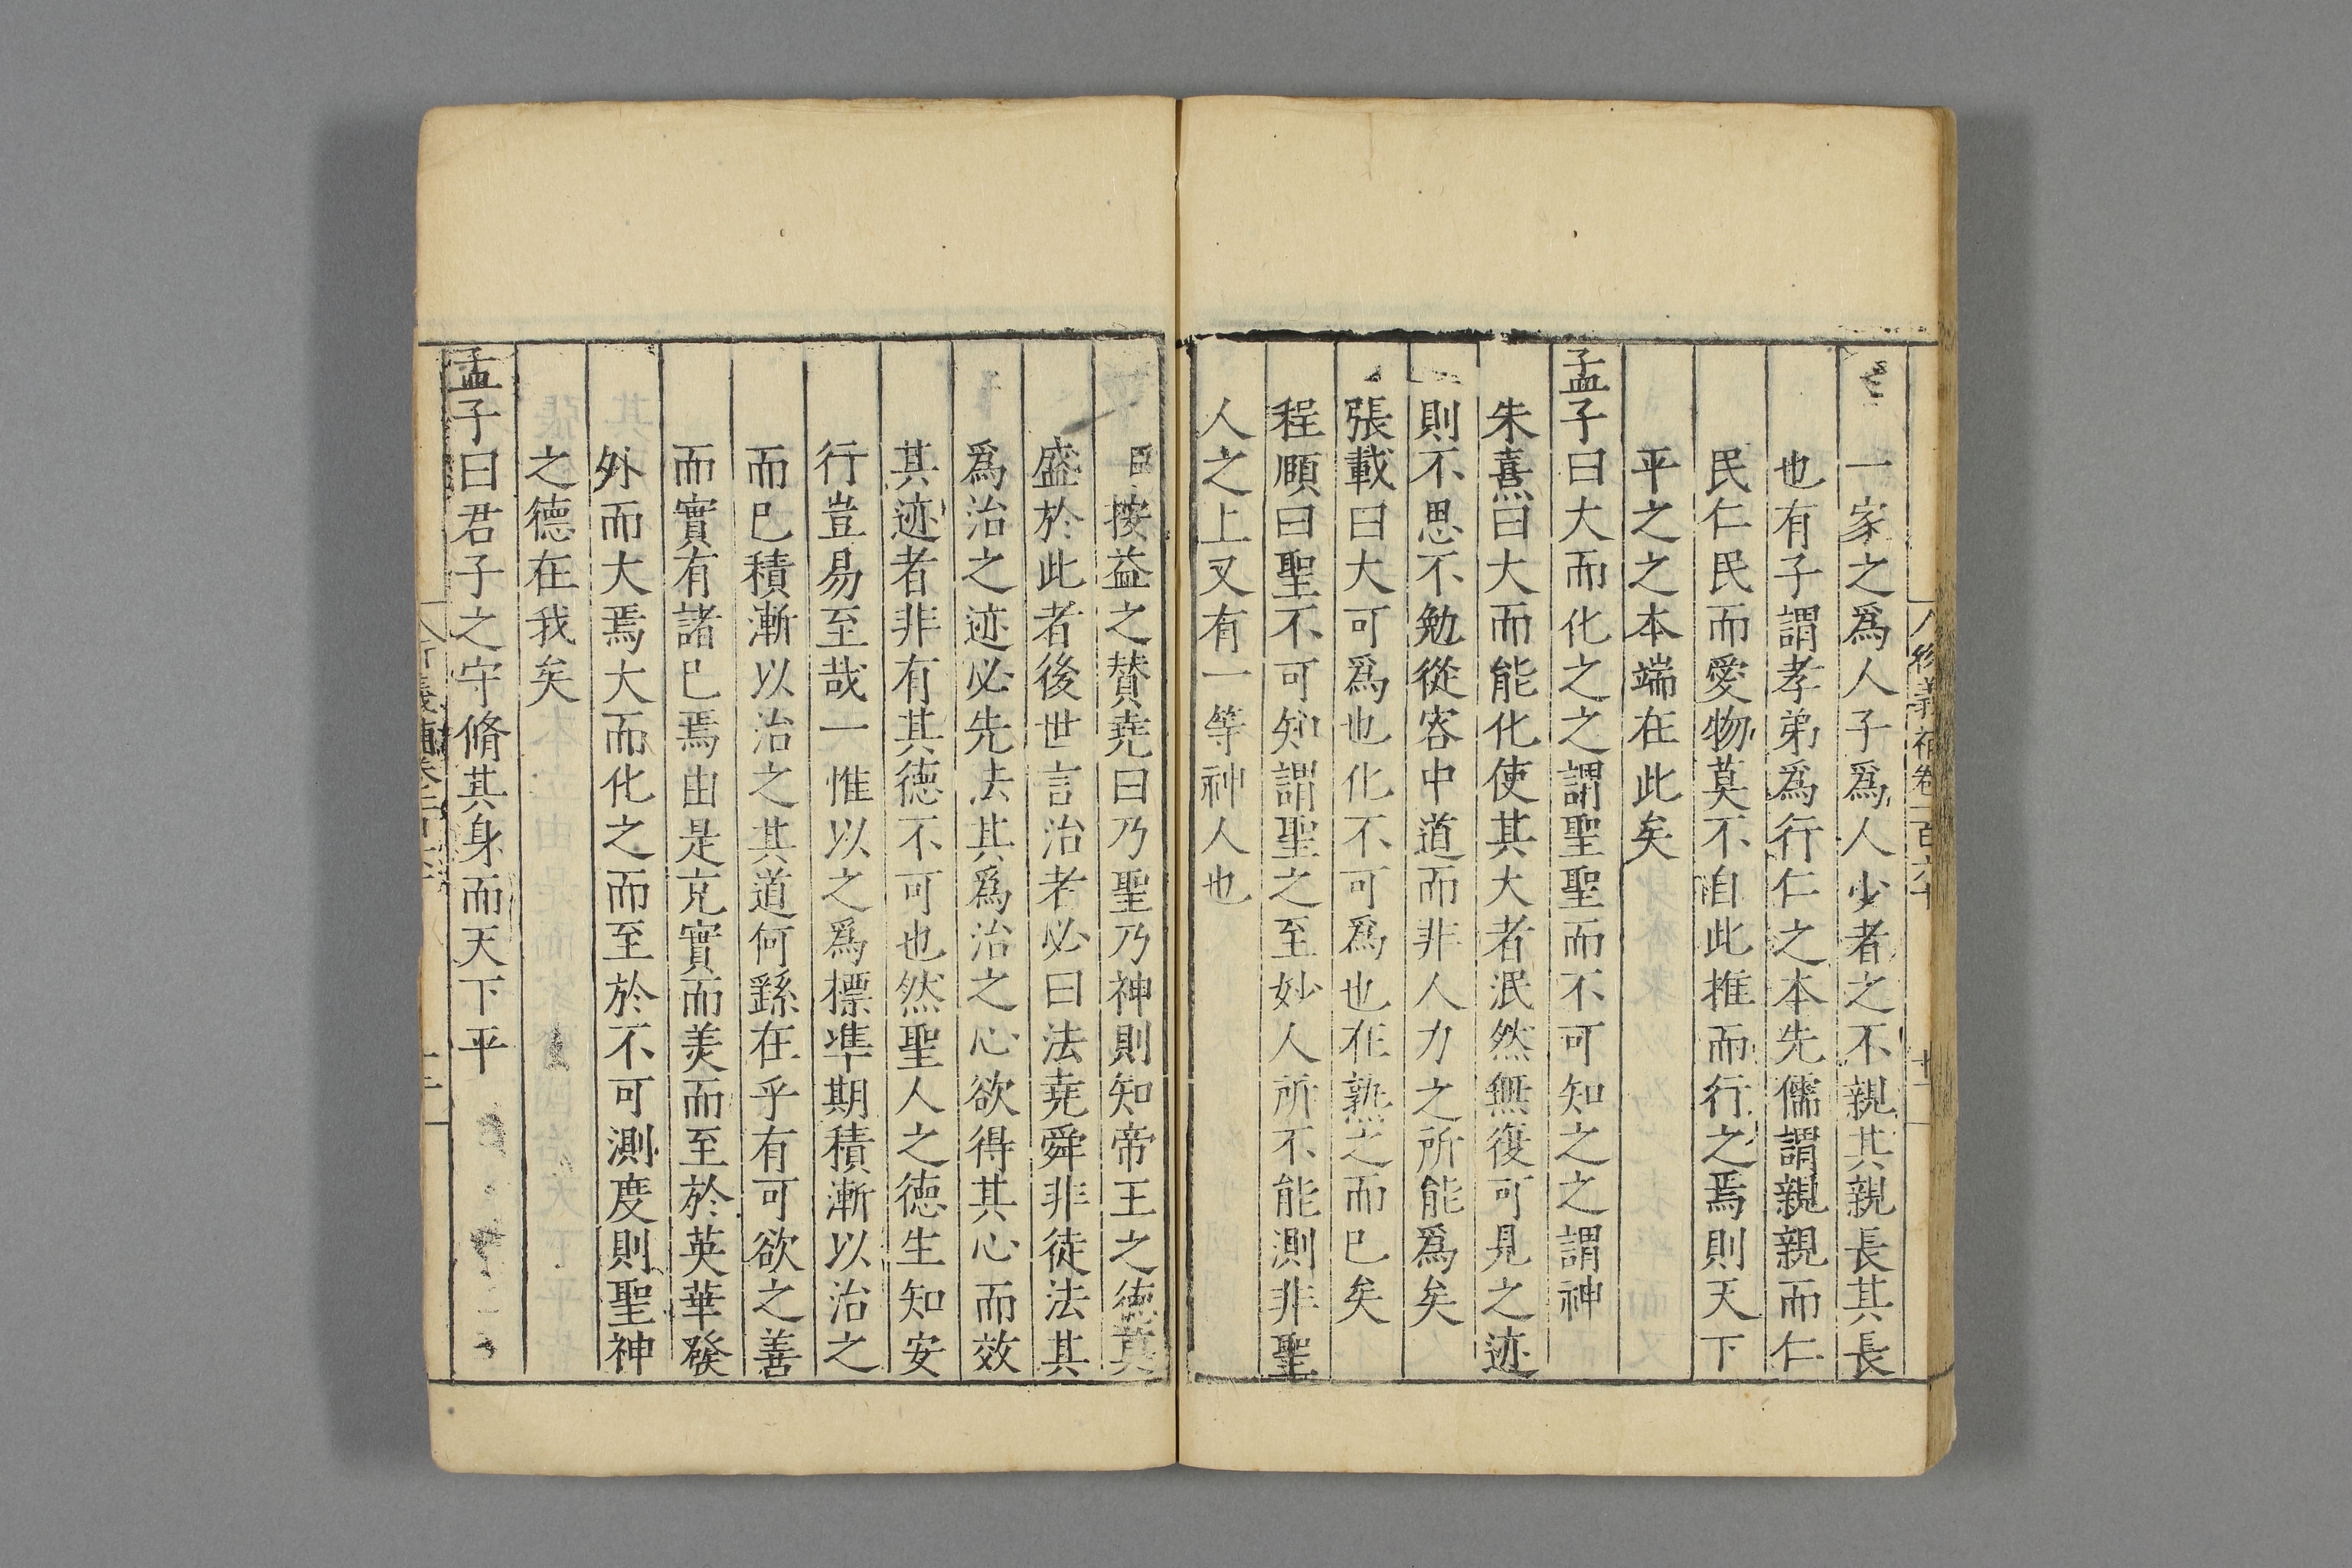 一家之爲人子爲人少者之不親其親長其長
也有子謂孝弟爲行仁之本先儒謂親親而仁
民仁民而愛物莫不自此推而行之焉則天下
平之之本端在此矣
孟子曰大而化之之謂聖聖而不可知之之謂神
朱熹曰大而能化使其大者泯然無復可見之迹
則不思不勉從容中道而非人力之所能爲矣
張載曰大可爲也化不可爲也在熟之而已矣
程頤曰聖不可知謂聖之至妙人所不能測非聖
人之上又有一等神人也
臣按益之贊堯曰乃聖乃神則知帝王之德莫
盛於此者後世言治者必曰法堯舜非徒法其
爲治之迹必先法其爲治之心欲得其心而效
其迹者非有其德不可也然聖人之德生知安
行豈易至哉一惟以之爲標準期積漸以治之
而已積漸以治之其道何繇在乎有可欲之善
而實有諸己焉由是充實而美而至於英華發
外而大焉大而化之而至於不可測度則聖神
之德在我矣
孟子曰君子之守脩其身而天下平